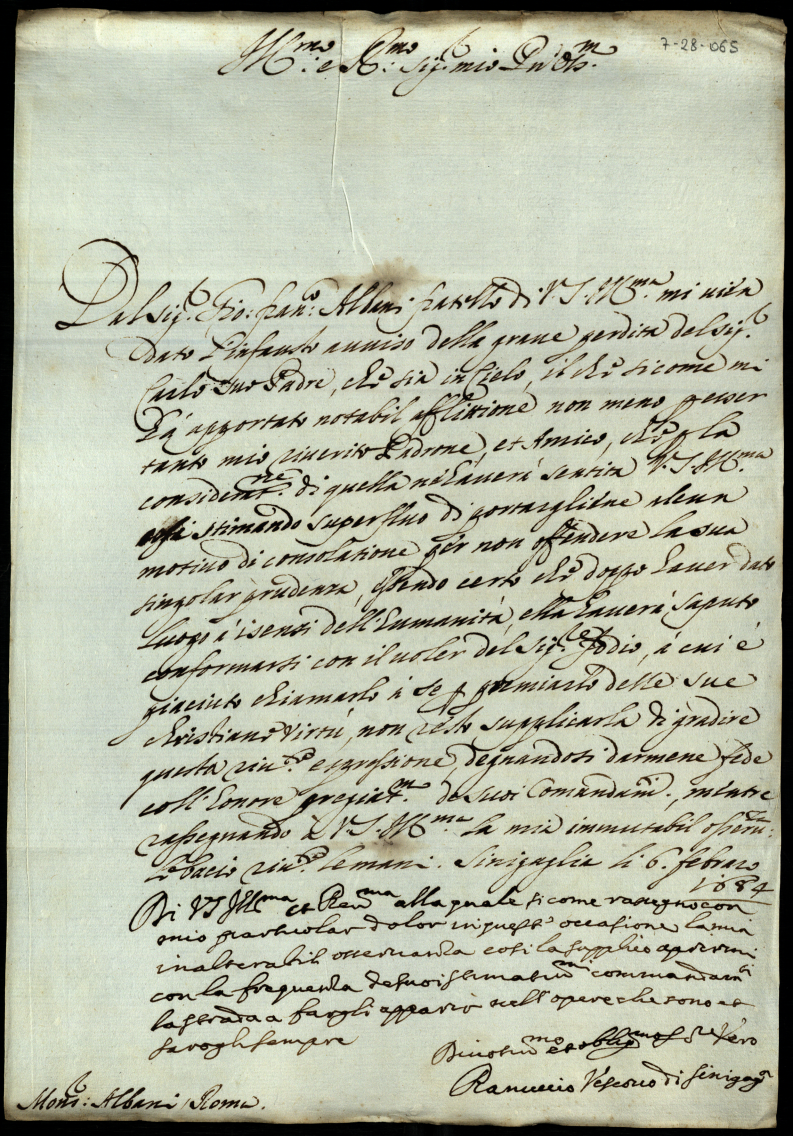 7-28-065
Ill.mo e R.mo Sig.r mio P.ron Oss.m
Dal Sig.r Gio: Fran.o Albani fratello di V.S. Ill.ma mi uien
dato l'infausto auuiso della graue perdita del Sig.r
Carlo suo Padre, che sia in Cielo, il che sicome mi
hà apportato notabil afflittione non meno p esser
tanto mio riuerito Padrone, et Amico, che p la
considerat.ne di quella né hauerà sentita V.S. Ill.ma
stimando superfluo di portargliène alcun
motiuo di consolatione pêr non offendere la sua
singolar prudenza, essendo certo che doppo hauer dato
luogo à i sensi dell'humanità, ella hauerà saputo
conformarsi con il uoler del Sig.re Iddio, à cui è
piaciuto chiamarlo à se p premiarlo delle sue
christiane Virtù, non resto supplicarla di gradire
questa riu.te espressione, degnandosi darmene fede
coll'honore pregiat.m de suoi Comandam.i, mentre
rassegnando à V.S. Ill.ma la mia immutabil osseru.za
le bacio riu.te le mani. Sinigaglia li 6. febraro
1684
Di VS Ill.ma et Reu.ma alla quale sicome rassegno con
mio particolar dolor in quest'occasione la mia
inalterabil osseruanza cosi la supplico aprirmi
con la frequenza de suoi stimatiss.mi commandam.ti
la strada a fargli apparir nell'opere che sono et
sarogli sempre
Diuotiss.mo et oblig.mo S.re Vero
Ranuccio Vescouo di Sinigag.a
Mons.r Albani Roma.